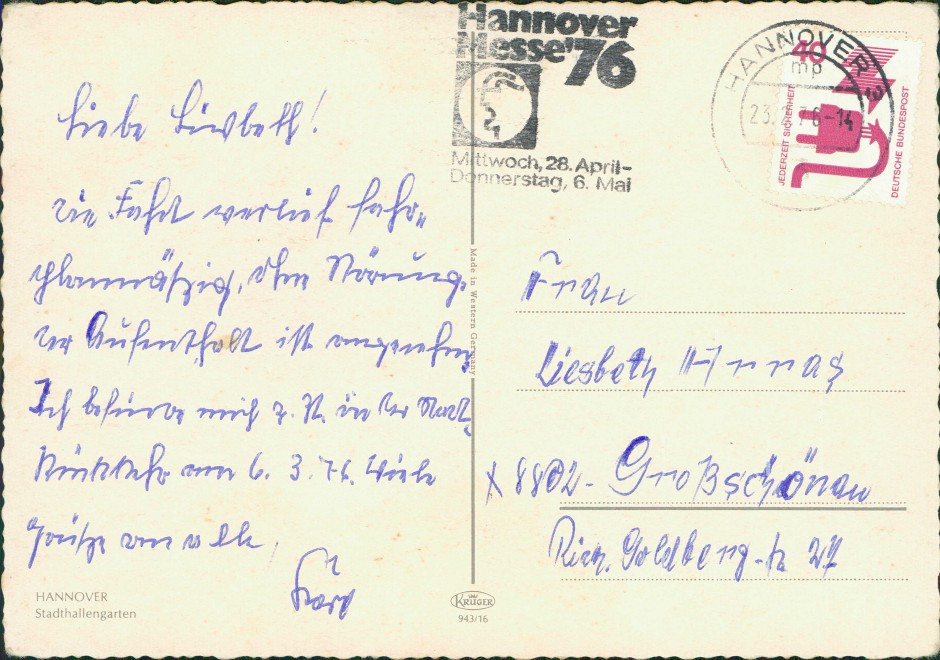 Hannover
Messe '76
Mittwoch, 28. April-
Donnerstag, 6. Mai
HANNOVER
mp
40
JEDERZEIT SICHERHEIT
DEUTSCHE BUNDESPOST
Liebe Lisbeth!
die Fahrt verlief fahr„
planmäßig, ohne Störung.
der Aufenthalt ist angenehm,
Ich befinde mich z. Zt. in der Stadt,
Rückkehr am 6. 3. 76. Viele
Grüße an alle,
Made in Western Germany
Frau
Liesbeth
x 8802 - Großschönau
Rich. Goldberg-
HANNOVER
Stadthallengarten
KRÜGER
943/16